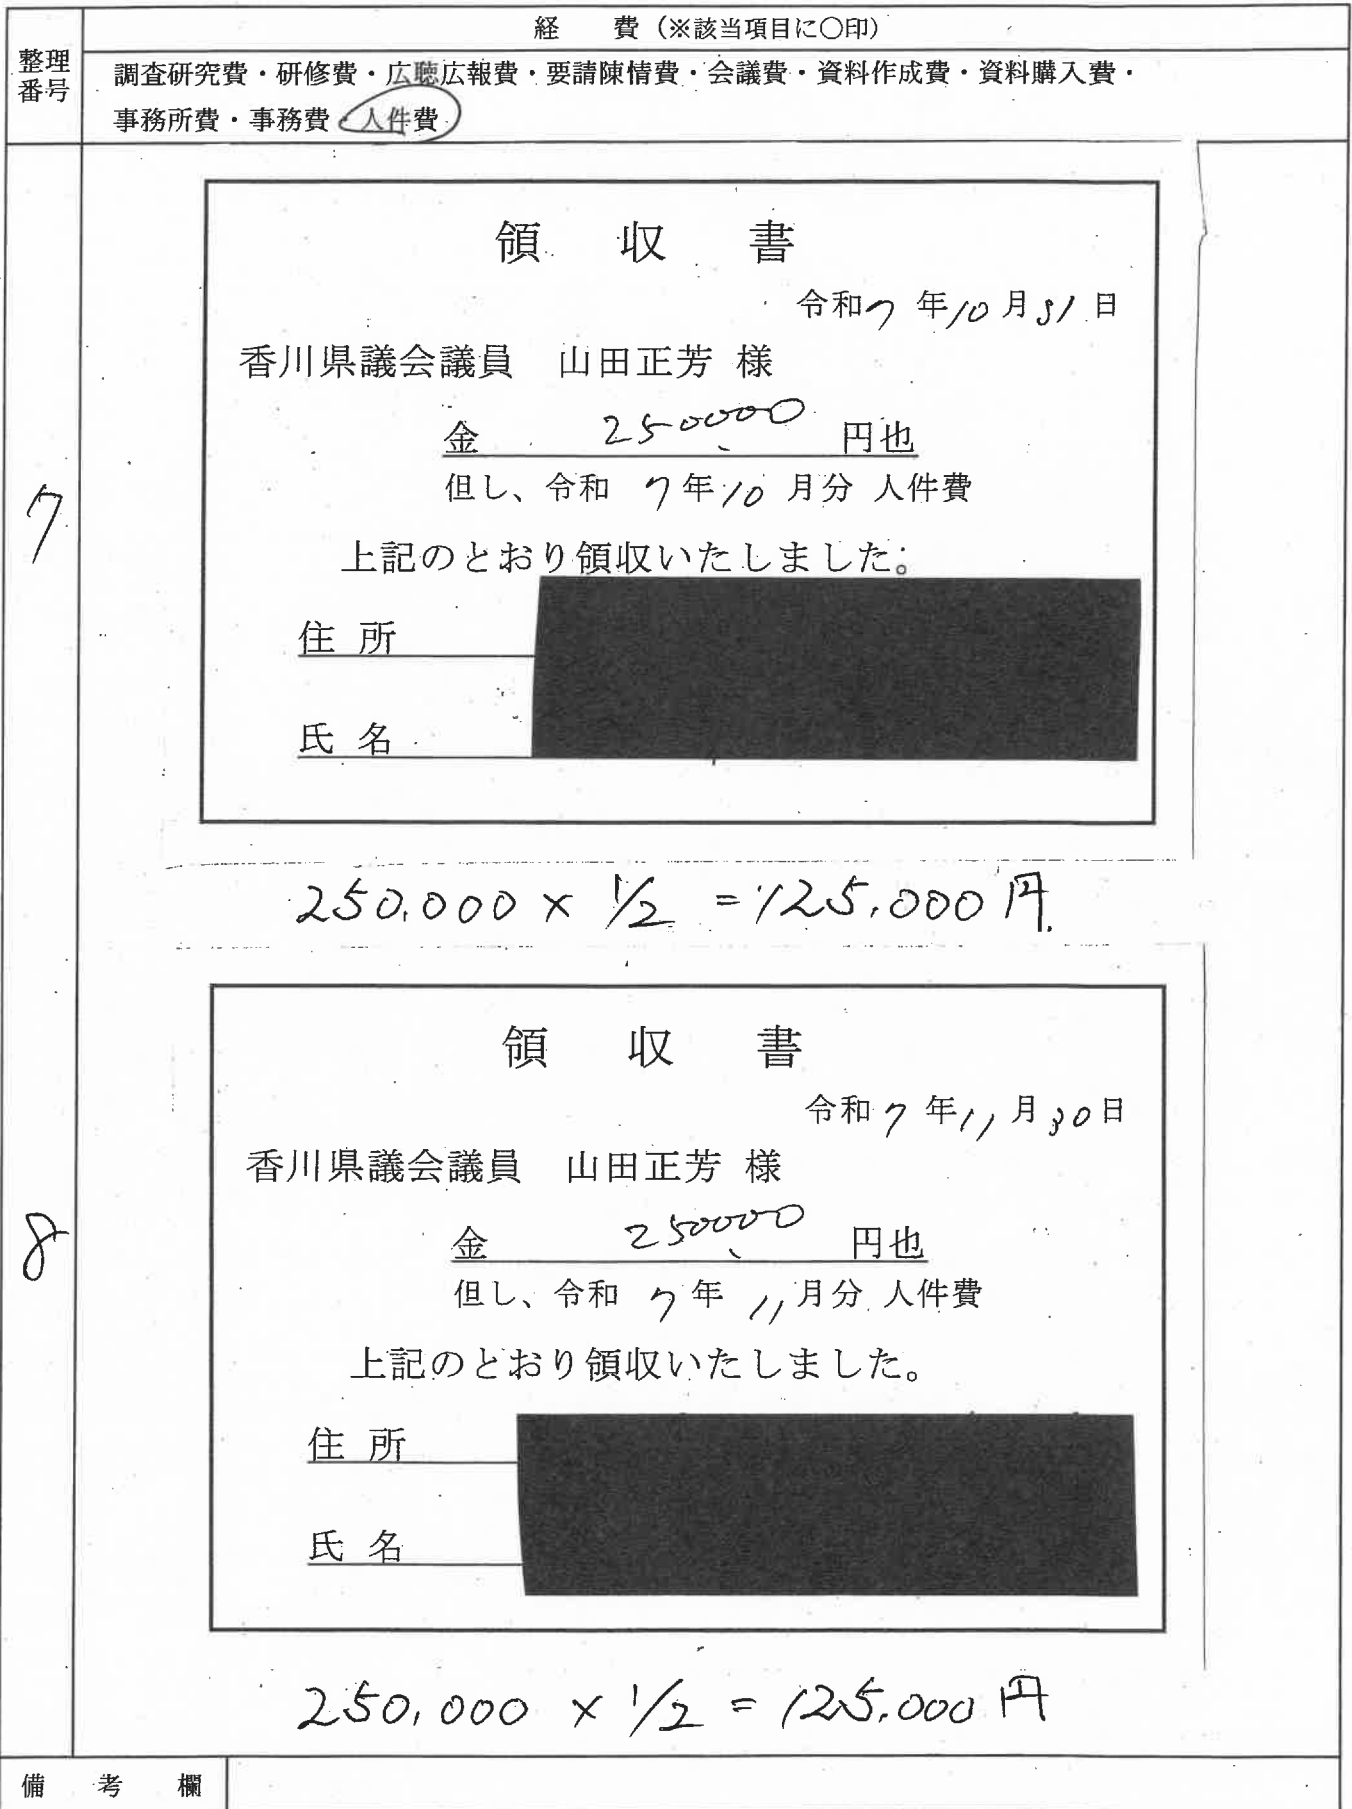 経　費（※該当項目に○印）
整理番号
調査研究費・研修費・広聴広報費・要請陳情費・会議費・資料作成費・資料購入費・
事務所費・事務費・人件費
7
領　収　書
令和7年10月31日
香川県議会議員　山田正芳 様
金 250000 円也
但し、令和 7年10月分 人件費
上記のとおり領収いたしました。
住所
氏名
250,000 × 1/2 = 125,000円
8
領　収　書
令和7年11月30日
香川県議会議員　山田正芳 様
金 250000 円也
但し、令和 7年11月分 人件費
上記のとおり領収いたしました。
住所
氏名
250,000 × 1/2 = 125,000円
備考欄